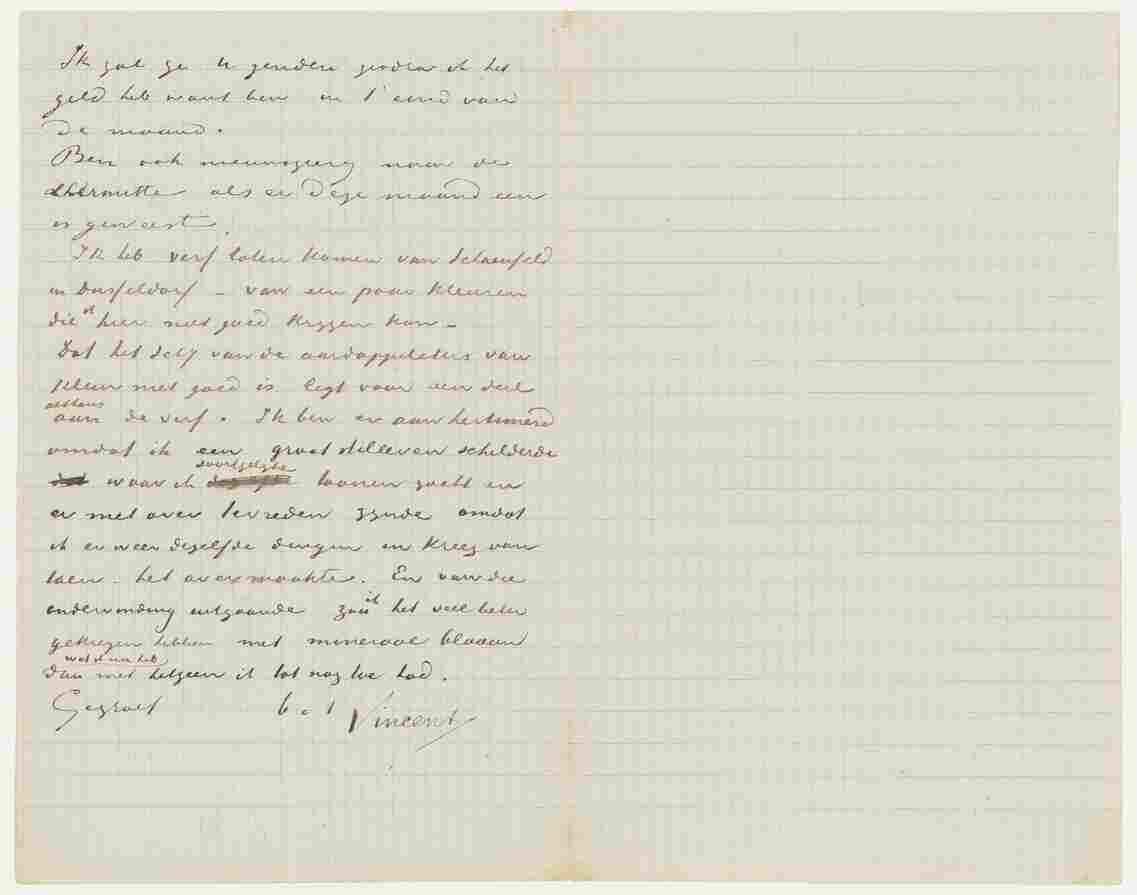 Ik zal ze U zenden zoodra ik het
geld heb want ben in t' eind van
de maand.
Ben ook nieuwsgierig naar de
Lhermitte als er deze maand een
is geweest.
Ik heb verf laten komen van Schoenfeld
in Dusseldorf – van een paar kleuren
die ik hier niet goed krijgen kan –
Dat het schij van de aardappeleters van
kleur niet goed is. legt voor een deel
althans
aan de verf. Ik ben er aan herinnerd
omdat ik een groot stilleven schilderde
waar ik soortgelijke toonen zocht en
er niet over tevreden zijnde omdat
ik er weer dezelfde dingen in kreeg van
toen – het overmaakte. En van die
ondervinding uitgaande zou ik het veel beter
gekregen hebben met mineraal blaauw
wat ik nu heb
dan met hetgeen ik tot nog toe had.
Gegroet b.t. Vincent